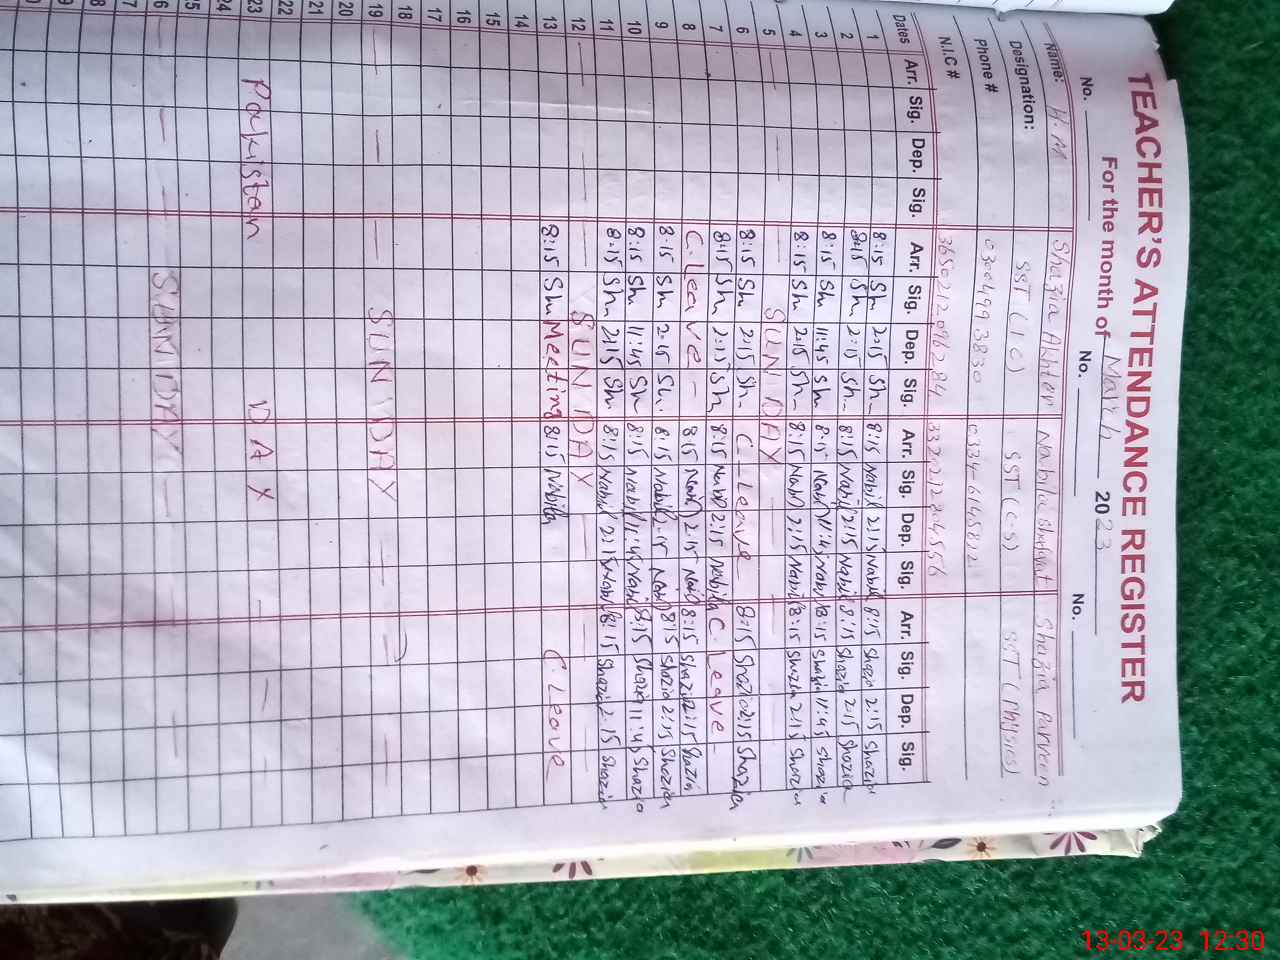 TEACHER'S ATTENDANCE REGISTER
For the month of March 2023
No. No. No.
Name: H.M Shazia Akhter Nabila Shafqat Shazia Parveen
Designation: SST (I C) SST (C-S) SST (Physics)
Phone # 03004993830
N.I.C #
Dates Arr. Sig. Dep. Sig. Arr. Sig. Dep. Sig. Arr. Sig. Dep. Sig. Arr. Sig. Dep. Sig.
1 8:15 Sh 2:15 Sh 8:15 Nabil 2:15 Nabil 8:15 Shazia 2:15 Shazia
2 8:15 Sh 2:15 Sh 8:15 Nabil 2:15 Nabil 8:15 Shazia 2:15 Shazia
3 8:15 Sh 11:45 Sh 8:15 Nabil 11:45 Nabil 8:15 Shazia 11:45 Shazia
4 8:15 Sh 2:15 Sh 8:15 Nabil 2:15 Nabil 8:15 Shazia 2:15 Shazia
5 SUNDAY
6 8:15 Sh 2:15 Sh C-Leave 8:15 Shazia 2:15 Shazia
7 8:15 Sh 2:15 Sh 8:15 Nabil 2:15 Nabila C. Leave -
8 C. Leave - 8:15 Nabil 2:15 Nabil 8:15 Shazia 2:15 Shazia
9 8:15 Sh 2:15 Sh 8:15 Nabil 2:15 Nabil 8:15 Shazia 2:15 Shazia
10 8:15 Sh 11:45 Sh 8:15 Nabil 11:45 Nabil 8:15 Shazia 11:45 Shazia
11 8:15 Sh 2:15 Sh 8:15 Nabil 2:15 Nabil 8:15 Shazia 2:15 Shazia
12 SUNDAY
13 8:15 Sh Meeting 8:15 Nabila C. Leave
14
15
16
17
18
19 SUNDAY
20
21
22
23 Pakistan DAY
24
25
26 SUNDAY
27
28
29
13-03-23 12:30